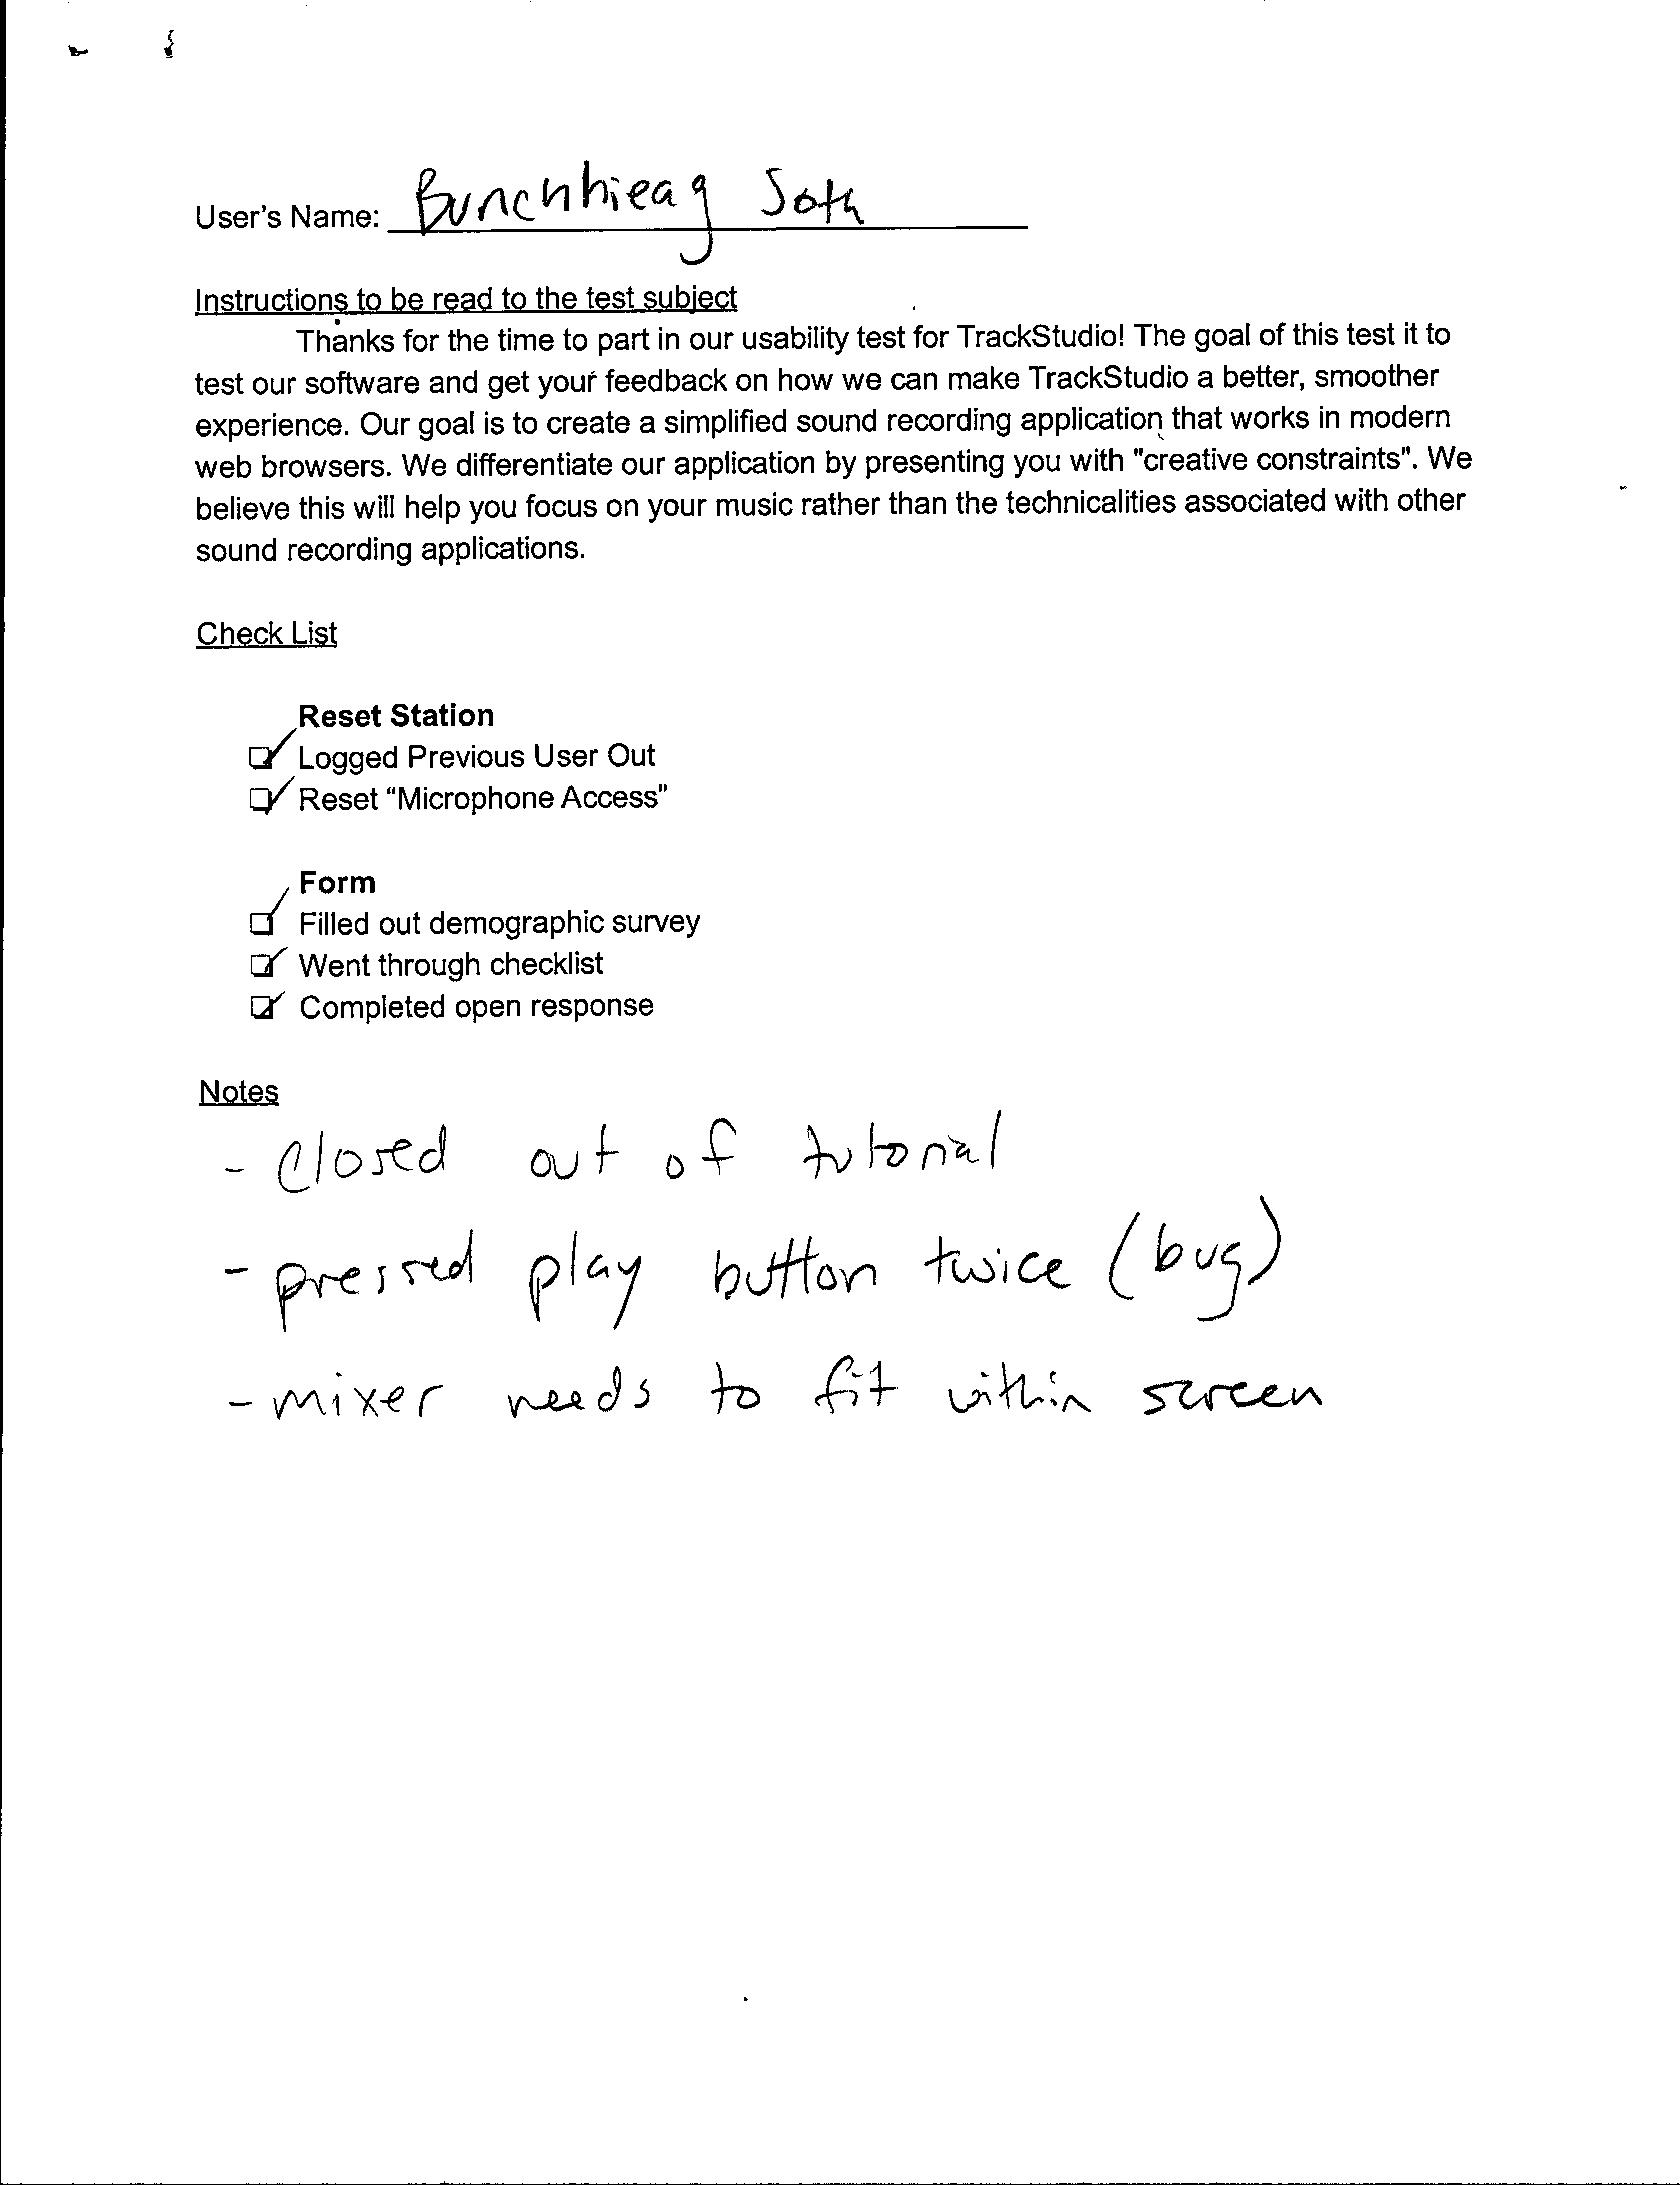 User's Name: Bunchhieag Soth
Instructions to be read to the test subject
Thanks for the time to part in our usability test for TrackStudio! The goal of this test it to
test our software and get your feedback on how we can make TrackStudio a better, smoother
experience. Our goal is to create a simplified sound recording application that works in modern
web browsers. We differentiate our application by presenting you with "creative constraints". We
believe this will help you focus on your music rather than the technicalities associated with other
sound recording applications.
Check List
Reset Station
Logged Previous User Out
Reset “Microphone Access”
Form
Filled out demographic survey
Went through checklist
Completed open response
Notes
- Closed out of tutorial
- pressed play button twice (bug)
- mixer needs to fit within screen